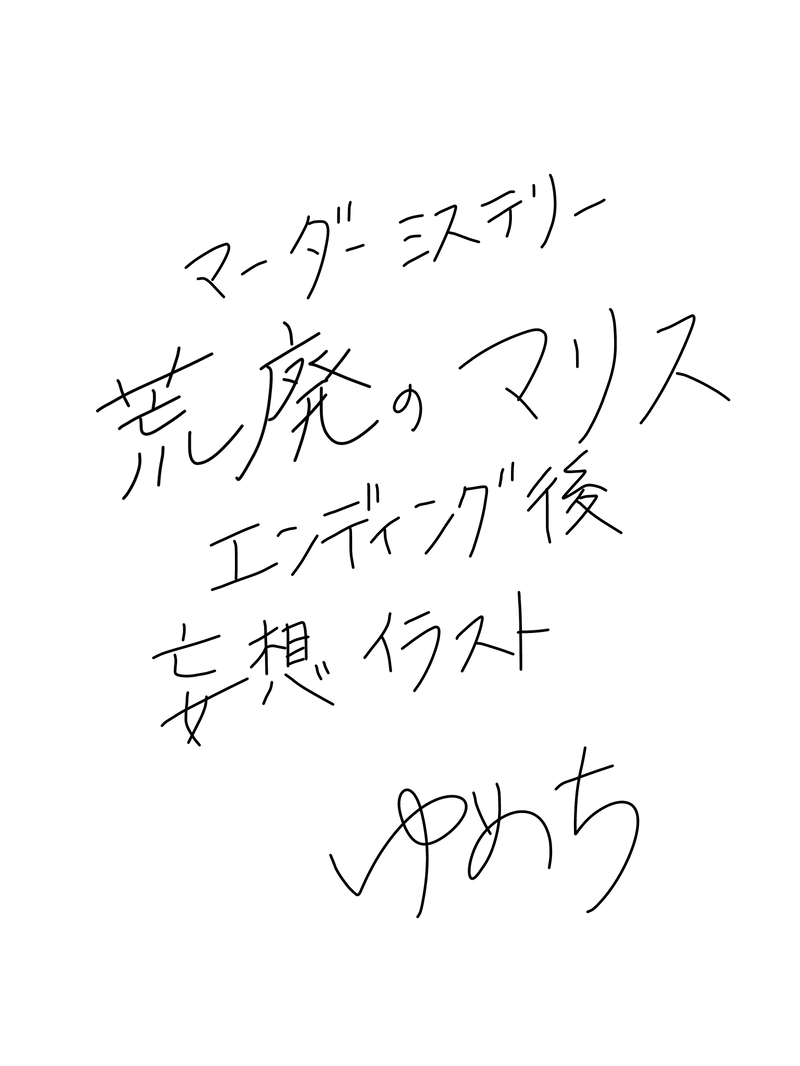 マーダーミステリー
荒廃のマリス
エンディング後
妄想イラスト
ゆめち